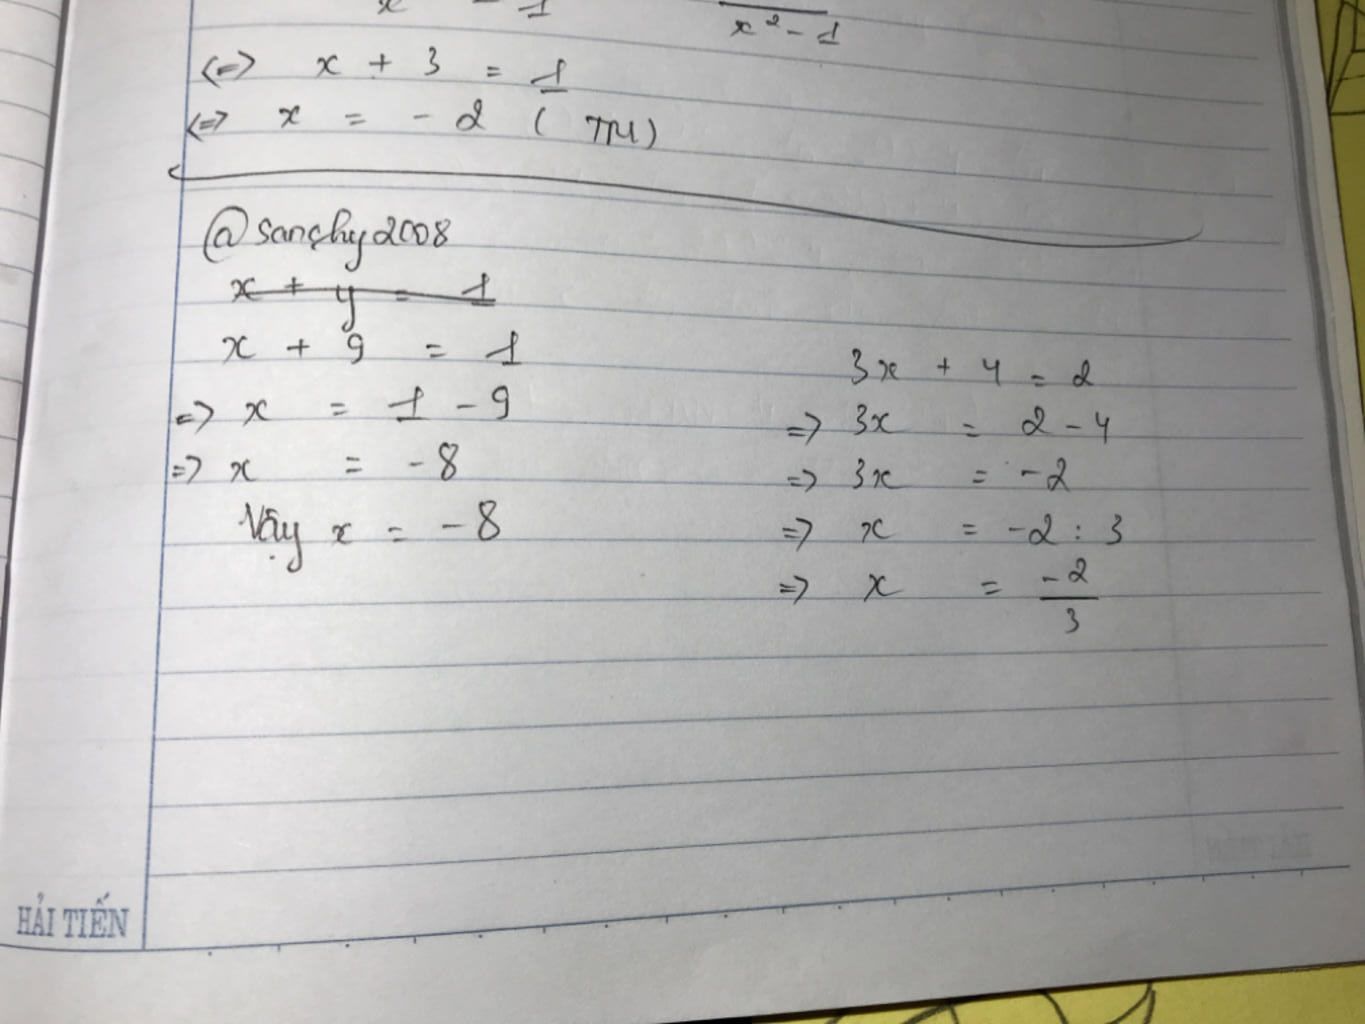 x² - 1
<=> x + 3 = 1
<=> x = - 2 ( TM )
@sanchy2008
x + y = 1
x + 9 = 1
=> x = 1 - 9
=> x = - 8
Vậy x = - 8
3x + 4 = 2
=> 3x = 2 - 4
=> 3x = - 2
=> x = -2 : 3
=> x = -2/3
HẢI TIẾN